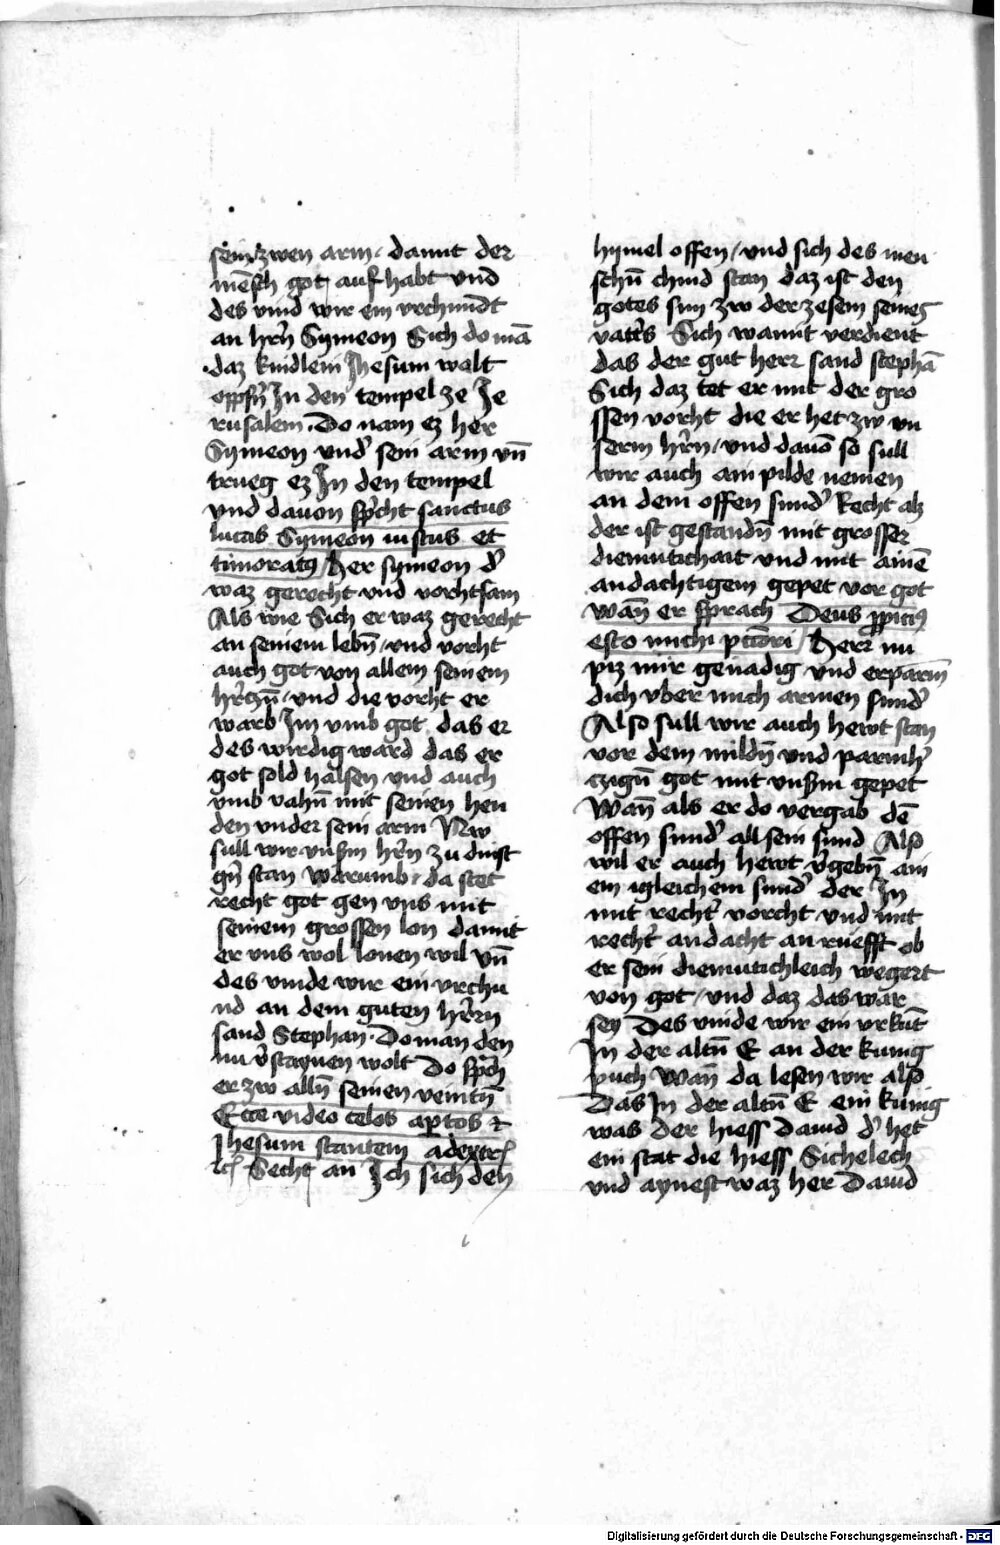 sein zwen arm / damit der
mēsch got auf habt vnd
des vind wir ein vrchundt
an hrn̄ Symeon Sich do mā
daz kindlein Jhesum wolt
oppfn̄ In den tempel ze Je
rusalem . Do nam ez her
Symeon vnd' sein arm vn̄
trueg ez In den tempel
vnd dauon sp̄cht sanctus
lucas Symeon iustus et
timoratꝰ / Her symeon d'
waz gerecht vnd vorhtsam
Als wie Sich er waz gerecht
an seinem lebn̄ / vnd vorht
auch got von allem seinem
hrczn̄ / vnd die vorht er
warb Im vmb got das er
des wirdig ward das er
got sold halsen vnd auch
vmb vahn̄ mit seinen hen
den vnder sein arm Nw
sull wir vnßm hrn̄ zu dinst
gn̄ stan Warumb / da stet
recht got gen vns mit
seinem grossen lon damit
er vns wol lonen wil vn̄
des vinde wir ein vrchu
nd an dem guten herrn
sand Stephan . Do man den
nu v'staynen wolt Do sp̄ch
er zw alln̄ seinen veintn̄
Ecce video celos ap̄tos et
Jhesum stantem adextr̄
Secht an Ich sich den
hymel offen / vnd sich des men
schn̄ chind stan daz ist den
gotes sun zw der zesem seines
vat's Sich wamit verdient
das der gut herr sand stephā
Sich daz tet er mit der gro
ssen vorht die er het zw vn
serm hrn̄ / vnd dauō so sull
wir auch ain pilde nemen
an dem offen sund' Recht alz
der ist gestandn̄ mit grosser
diemutichait vnd mit ainē
andachtigem gepet vor got
wan̄ er sprach Deus ꝓpiciꝰ
esto michi p̄ctōri / Herr nu
piz mir genadig vnd erparm
dich vber mich armen sund'
Also sull wir auch hewt stan
vor dem mildn̄ vnd parmh'
czign̄ got mit vnßm gepet
Wan̄ als er do vergab dē
offen sund' all sein sund Also
wil er auch hewt v'gebn̄ ain
em igleichem sund' der In
mit recht' vorcht vnd mit
recht' andacht an rüefft ob
er sein diemutichleich wegert
von got / vnd daz das war
sey Des vinde wir ein vrkūt
In der altn̄ E an der kunig
puch Wan̄ da lesen wir also
Das In der altn̄ E ein kunig
was der hiess Dauid d' het
ein stat die hiess Sichelech
vnd aynest waz her Dauid
Digitalisierung gefördert durch die Deutsche Forschungsgemeinschaft - DFG